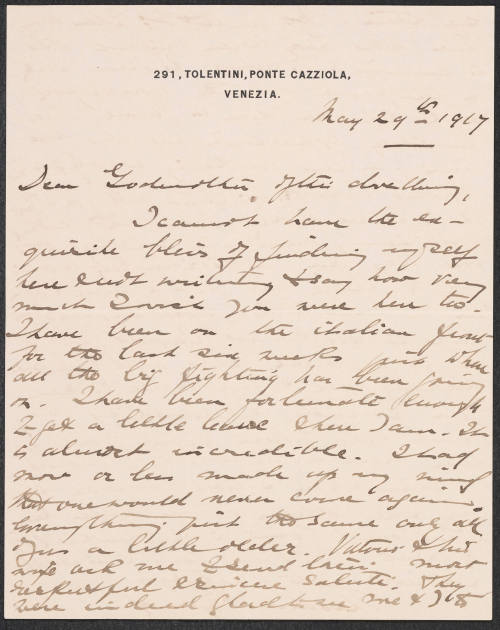 291, TOLENTINI, PONTE CAZZIOLA,
VENEZIA.
May 29th 1917
Dear Godmother of the dwelling,
I cannot have the ex-
quisite bliss of finding myself
here & not writing & say how very
much I wish you were here too.
I have been on the italian front
for the last six weeks just when
all the big fighting has been going
on. I have been fortunate enough
to get a little leave & here I am. It
is almost incredible. I had
more or less made up my mind
that one would never come again
& everything just the same only all
of us a little older. & his
wife ask me to send their most
respectful & sincere saluti. They
were indeed glad to see me & I to